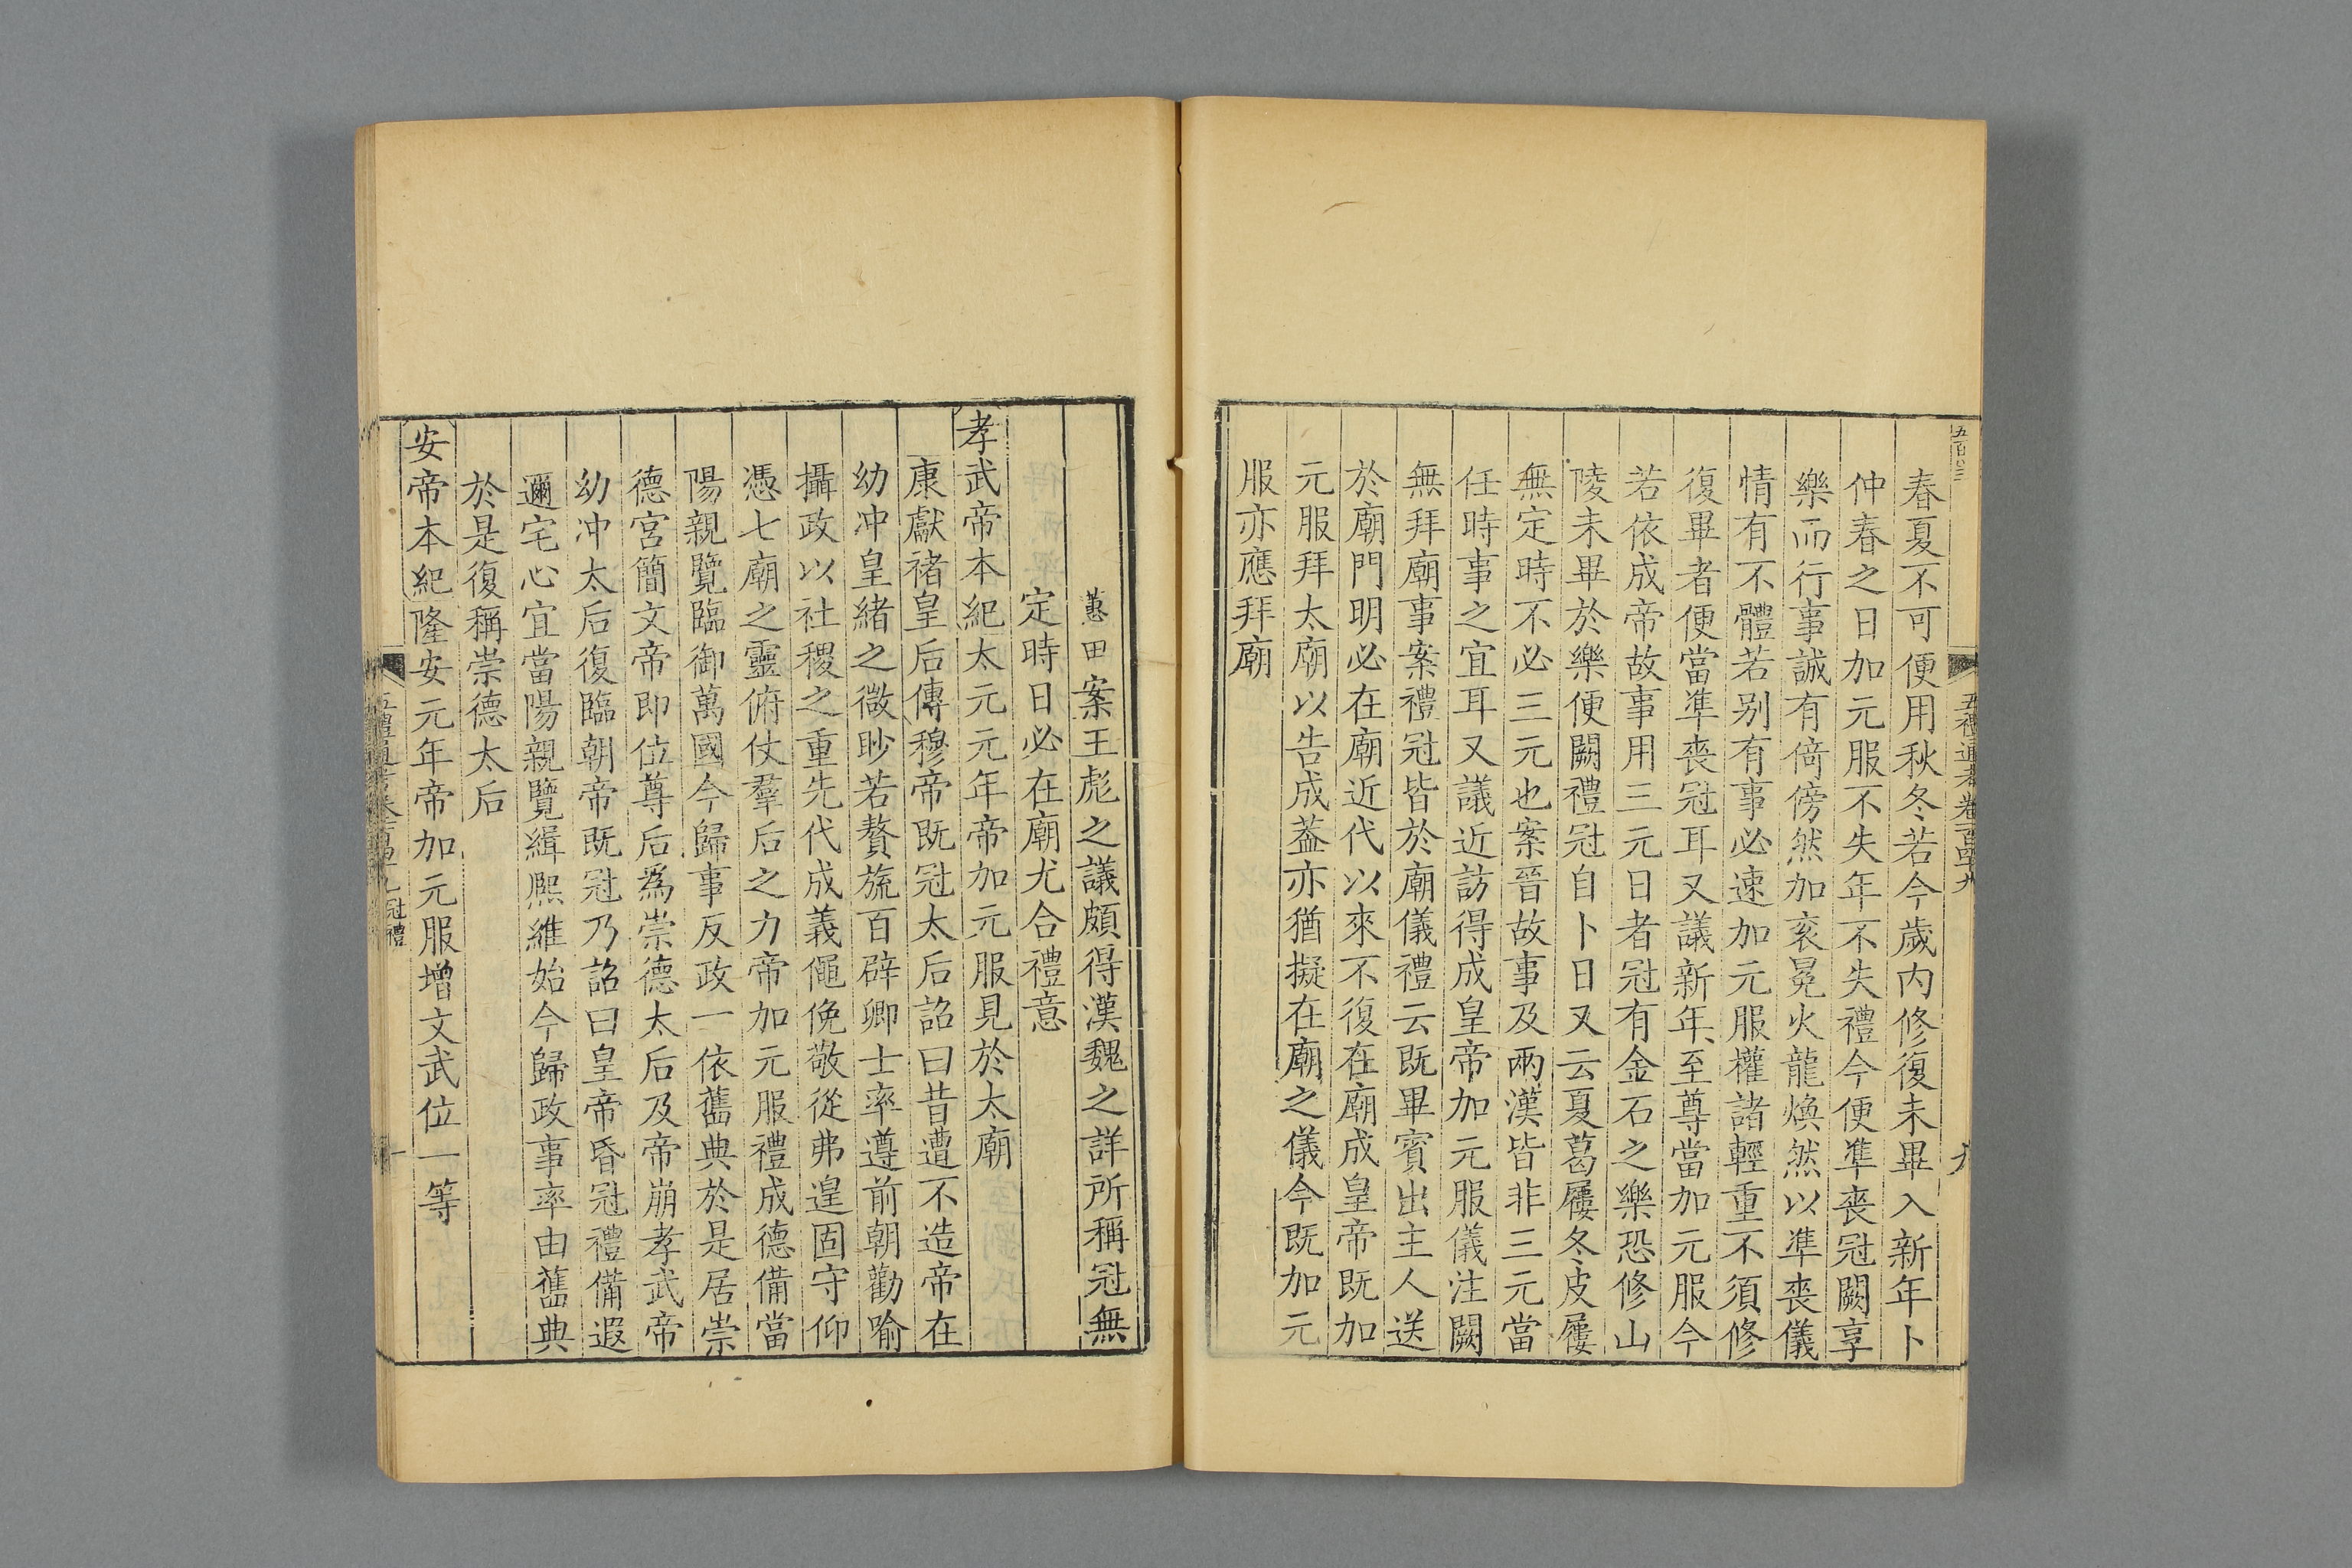 五禮通考卷一百四十九
九
春夏不可便用秋冬若今歲内修復未畢入新年卜
仲春之日加元服不失年不失禮今便準喪冠闕享
樂而行事誠有倚傍然加衮冕火龍煥然以準喪儀
情有不體若别有事必速加元服權諸輕重不須修
復畢者便當準喪冠耳又議新年至尊當加元服今
若依成帝故事用三元日者冠有金石之樂恐修山
陵未畢於樂便闕禮冠自卜日又云夏葛屨冬皮屨
無定時不必三元也案晉故事及兩漢皆非三元當
任時事之宜耳又議近訪得成皇帝加元服儀注闕
無拜廟事案禮冠皆於廟儀禮云既畢賓出主人送
於廟門明必在廟近代以來不復在廟成皇帝既加
元服拜太廟以告成葢亦猶擬在廟之儀今既加元
服亦應拜廟
蕙田案王彪之議頗得漢魏之詳所稱冠無
定時日必在廟尤合禮意
孝武帝本紀太元元年帝加元服見於太廟
康獻褚皇后傳穆帝既冠太后詔曰昔遭不造帝在
幼冲皇緒之微眇若贅旒百辟卿士率遵前朝勸喻
攝政以社稷之重先代成義僶俛敬從弗遑固守仰
憑七廟之靈俯仗羣后之力帝加元服禮成德備當
陽親覽臨御萬國今歸事反政一依舊典於是居崇
德宮簡文帝即位尊后為崇德太后及帝崩孝武帝
幼冲太后復臨朝帝既冠乃詔曰皇帝昏冠禮備遐
邇宅心宜當陽親覽緝熙維始今歸政事率由舊典
於是復稱崇德太后
安帝本紀隆安元年帝加元服增文武位一等
冠禮